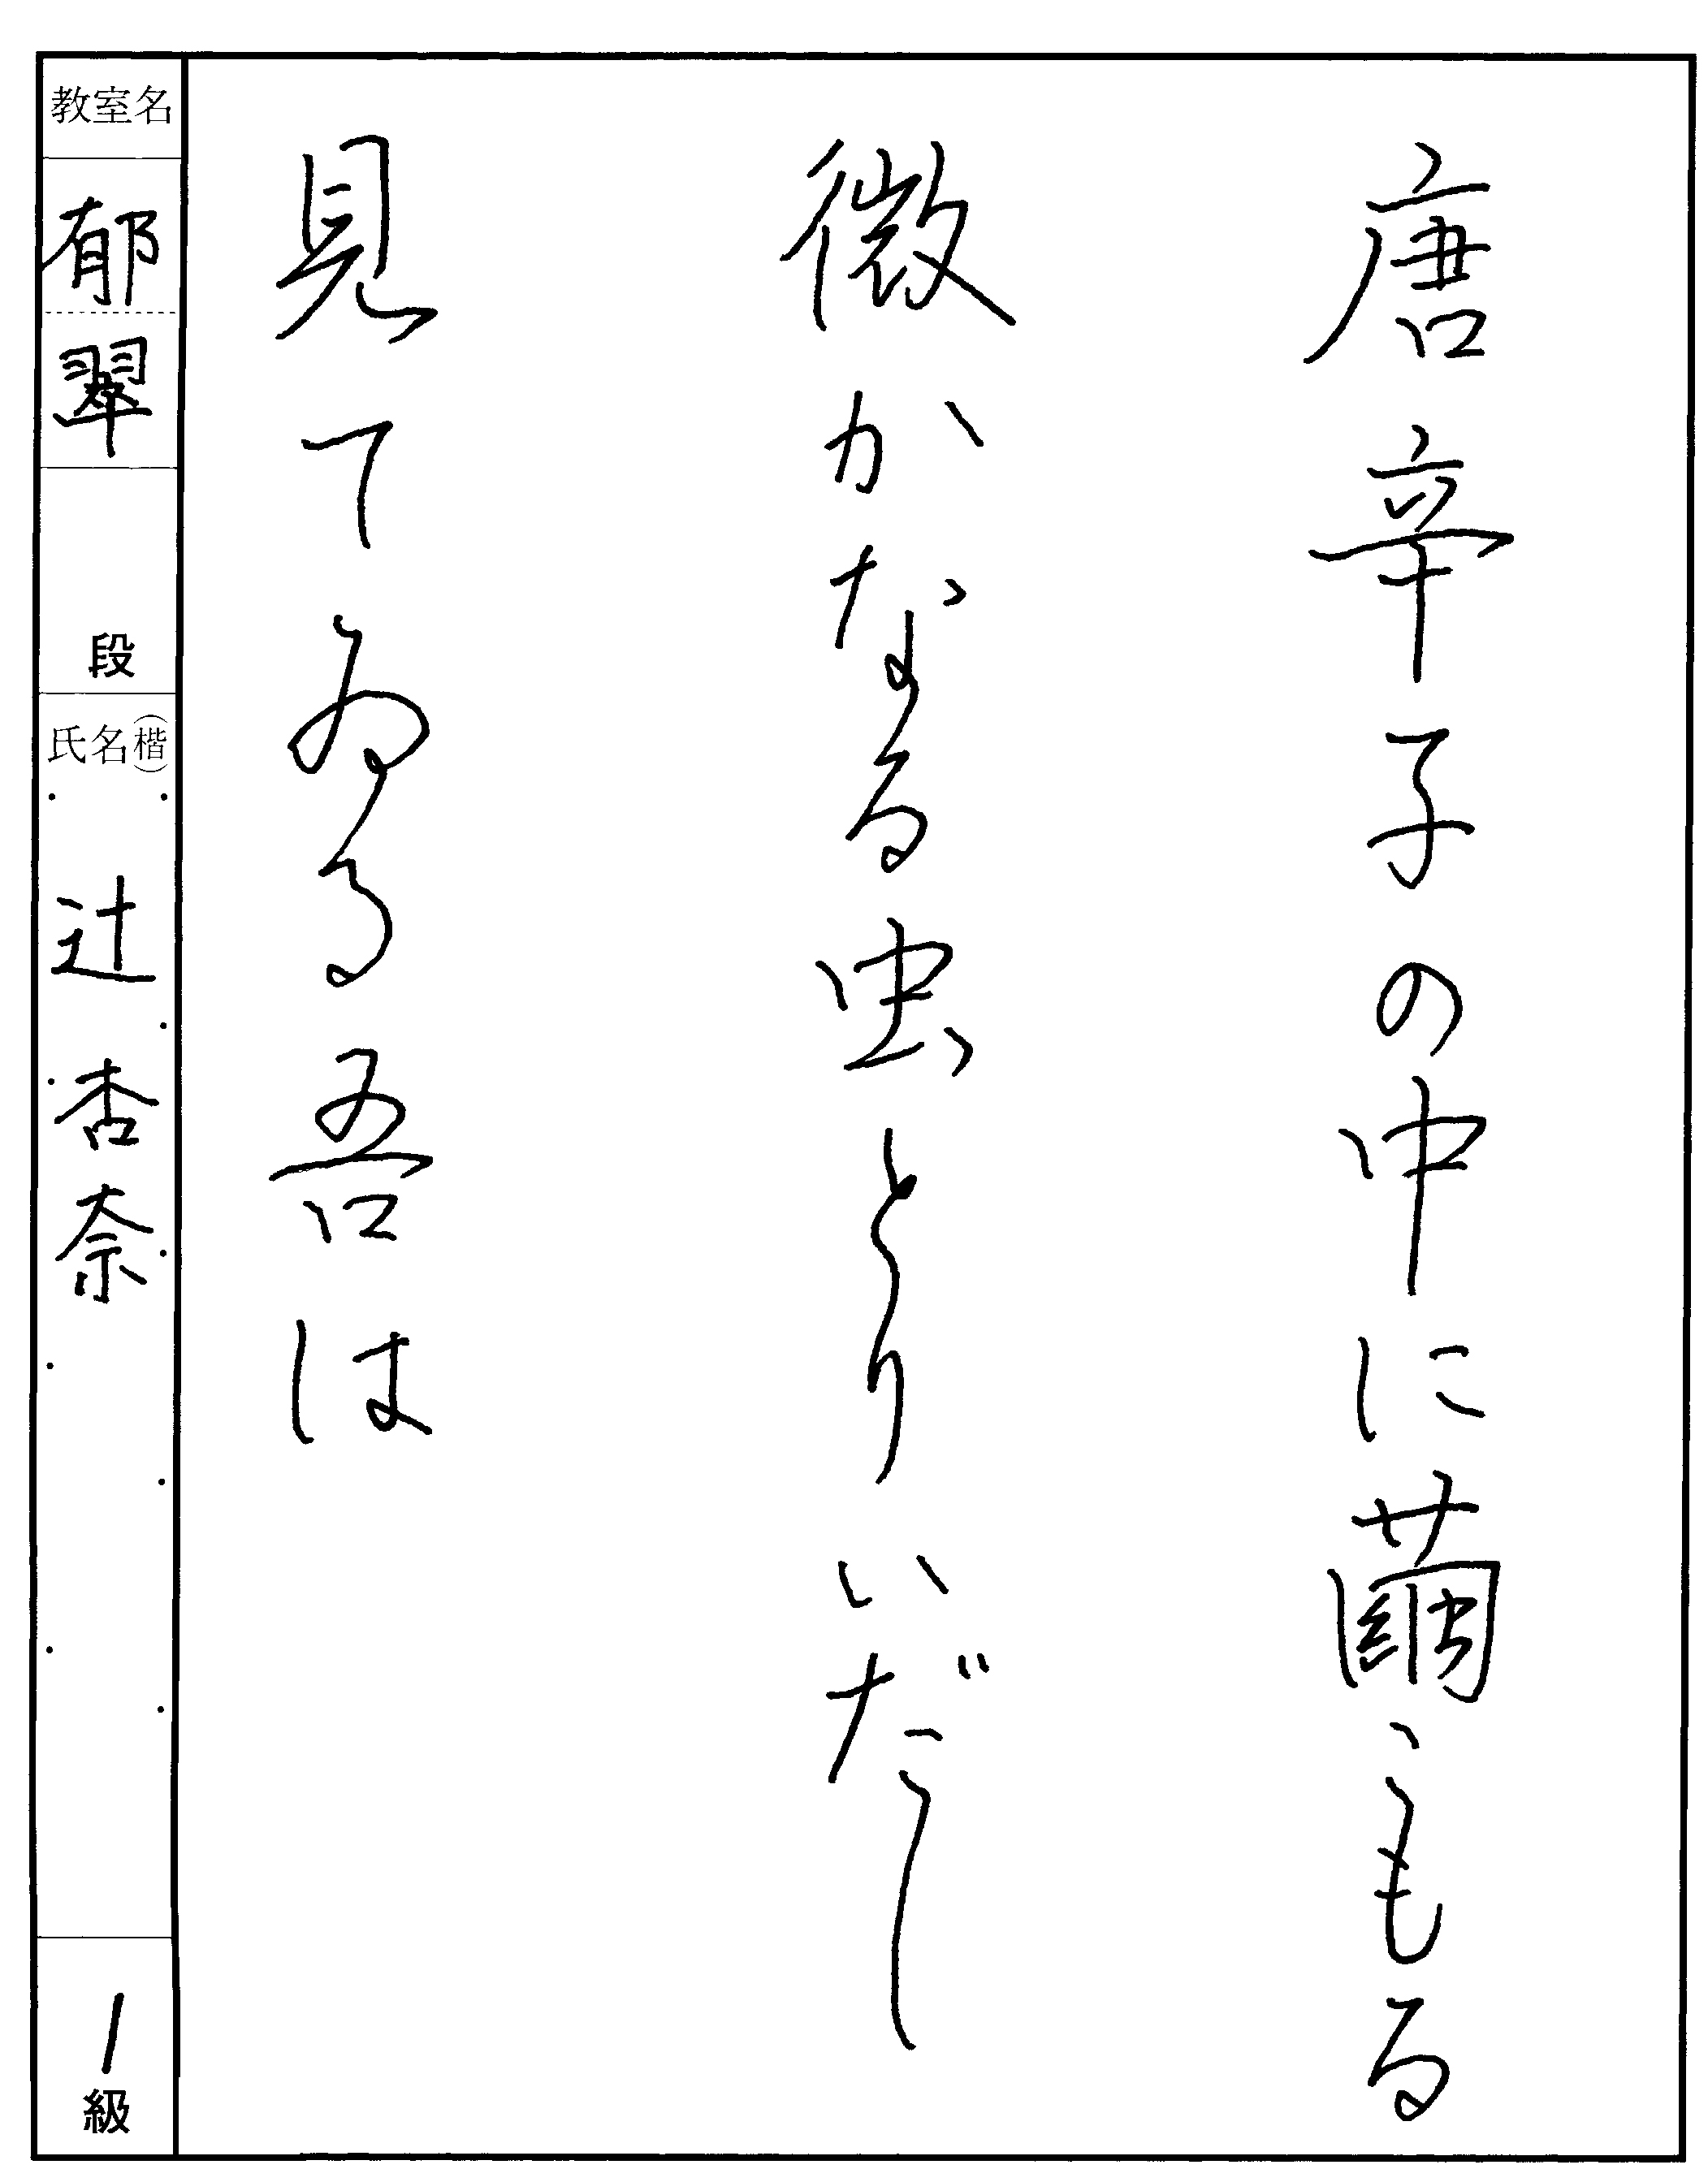 唐辛子の中に繭こもる
微かなる虫とりいだし
見てゐる吾は
教室名
郁翠
段
氏名(楷)
辻杏奈
1級